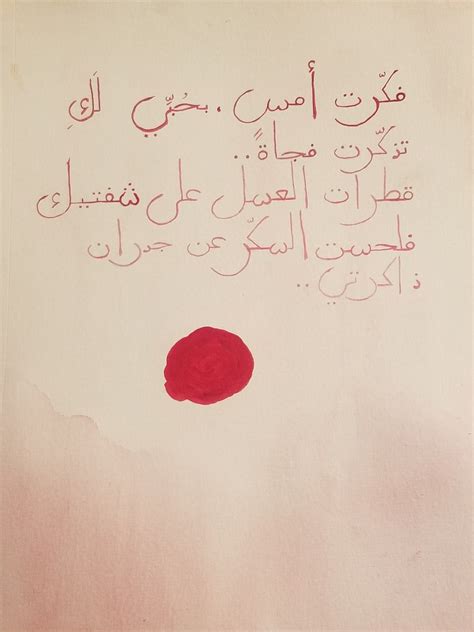 فكّرت أمس . بحُبِّي لَكِ
تذكّرت فجاةً ..
قطرات العسل على شفتيك
فلحست السكّر عن جدران
ذاكرتي ..